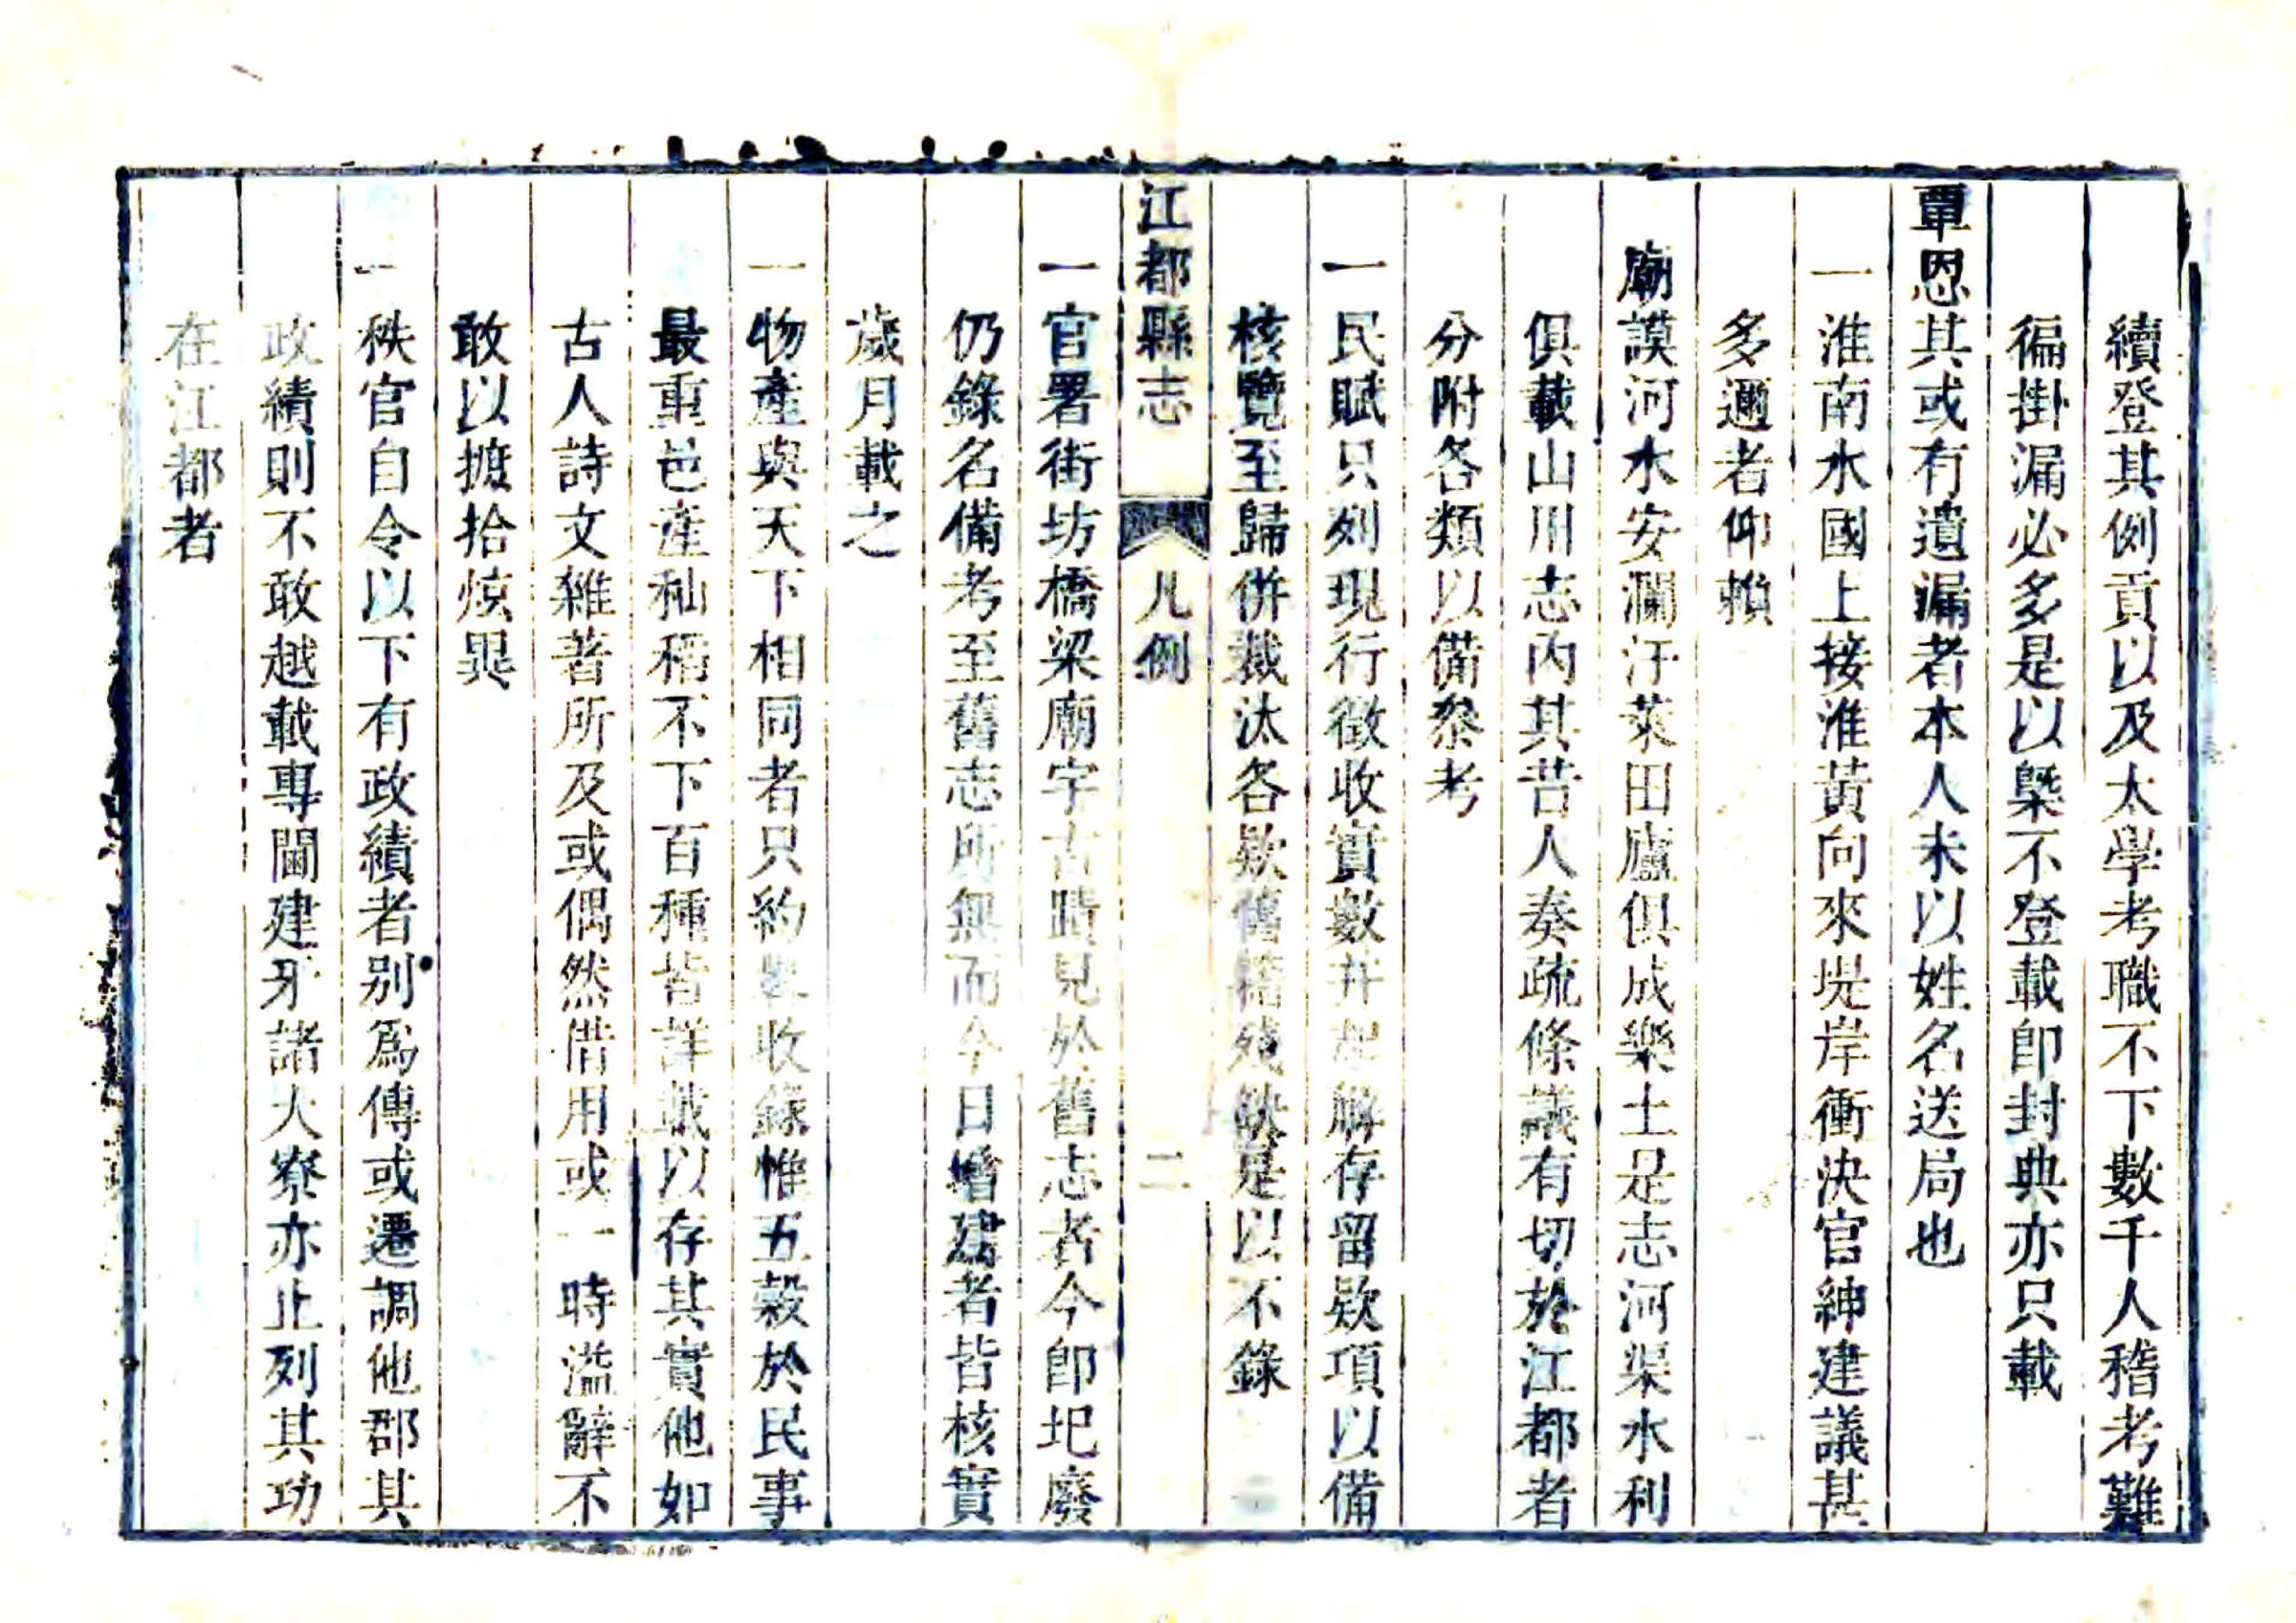 續登其例貢以及太學考職不下數千人稽考難
徧掛漏必多是以槩不登載卽封典亦只載
覃恩其或有遺漏者本人未以姓名送局也
一淮南水國上接淮黃向來堤岸衝決官紳建議甚
多邇者仰賴
廟謨河水安瀾汙萊田廬俱成樂土是志河渠水利
俱載山川志內其昔人奏疏條議有切於江都者
分附各類以備叅考
一民賦只列現行徵收實數并起解存留欵項以備
核覽至歸併裁汰各欵舊籍殘缺是以不錄
江都縣志
凡例
二
一官署街坊橋梁廟宇古蹟見於舊志者今卽圯廢
仍錄名備考至舊志所無而今日增建者皆核實
歲月載之
一物產與天下相同者只約畧收錄惟五穀於民事
最重邑產秈稻不下百種皆詳載以存其實他如
古人詩文雜著所及或偶然借用或一時溢辭不
敢以摭拾炫異
一秩官自令以下有政績者别爲傳或遷調他郡其
政績則不敢越載專閫建牙諸大寮亦止列其功
在江都者